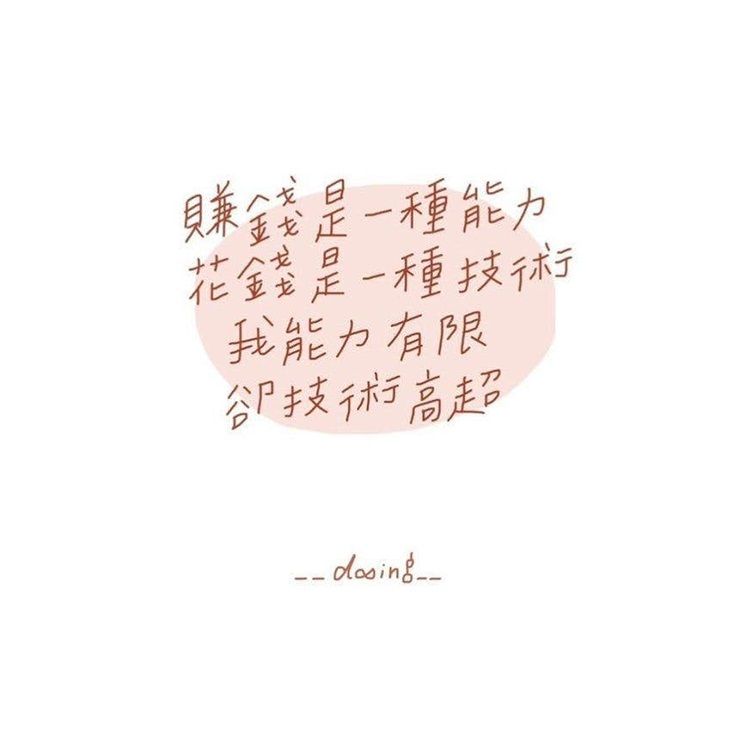 賺錢是一種能力
花錢是一種技術
我能力有限
卻技術高超
__dosing__